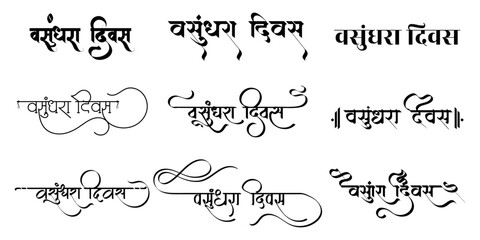 वसुंधरा दिवस
वसुंधरा दिवस
वसुंधरा दिवस
वसुंधरा दिवस
वसुंधरा दिवस
॥वसुंधरा दिवस॥
वसुंधरा दिवस
वसुंधरा दिवस
वसुंधरा दिवस